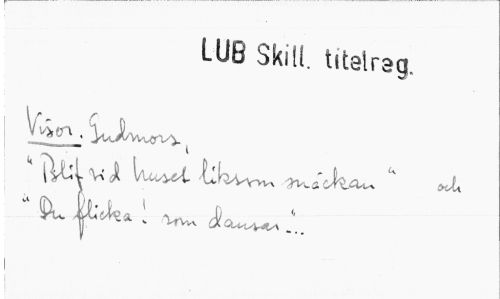 LUB Skill. titelreg.
Visor. Gudmors,
"Blif vid huset liksom snäckan" och
"Du flicka! som dansar"...